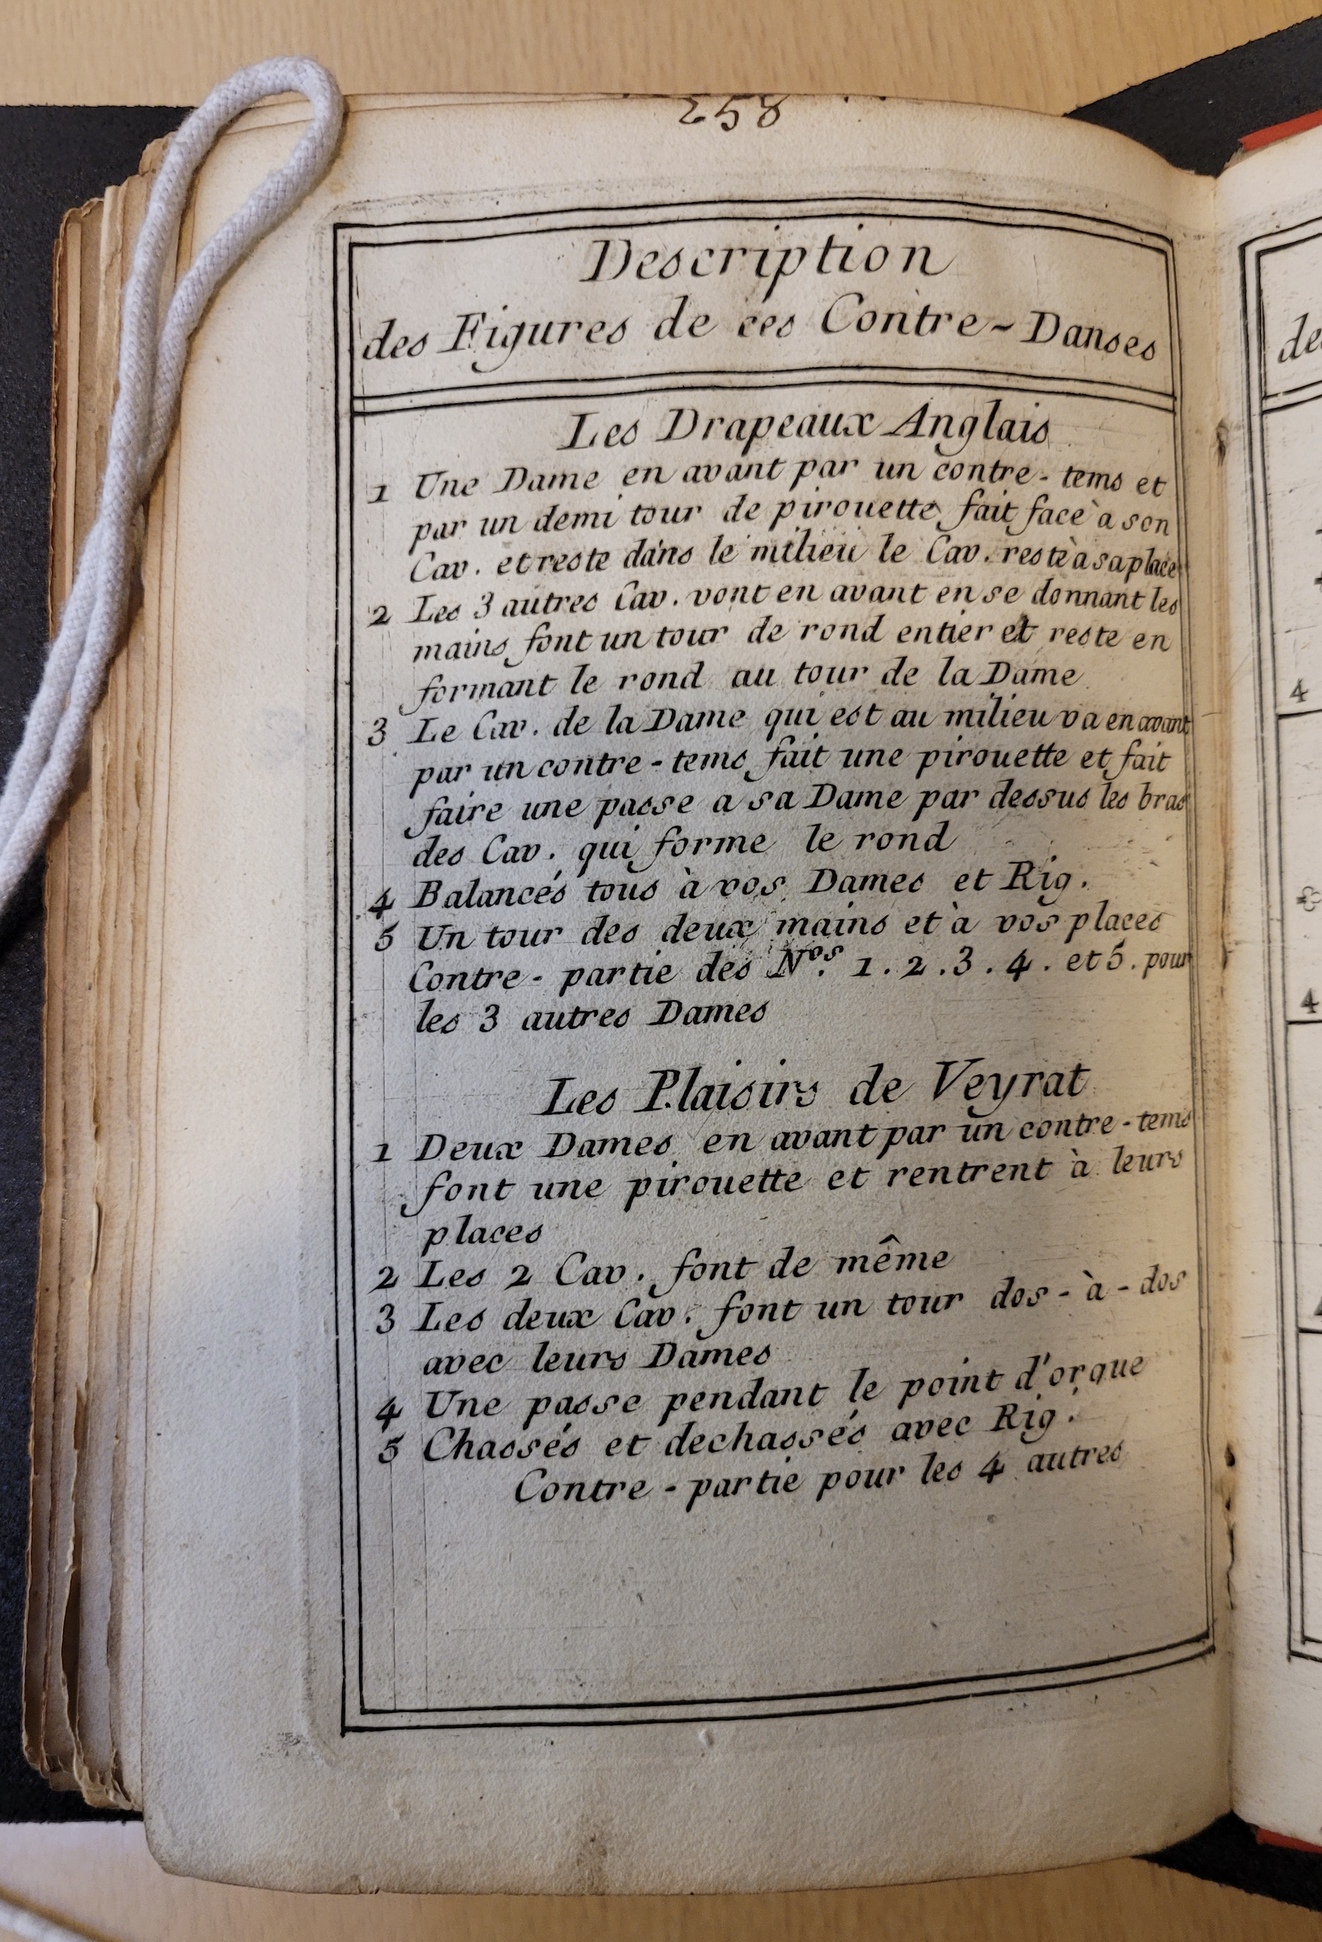 258
Description
des Figures de ces Contre-Danses
Les Drapeaux Anglais
1 Une Dame en avant par un contre-tems et
par un demi tour de pirouette fait face à son
Cav. et reste dans le milieu le Cav. reste à sa place
2 Les 3 autres Cav. vont en avant en se donnant les
mains font un tour de rond entier et reste en
formant le rond au tour de la Dame
3 Le Cav. de la Dame qui est au milieu va en avant
par un contre-tems fait une pirouette et fait
faire une passe a sa Dame par dessus les bras
des Cav. qui forme le rond
4 Balancés tous à vos Dames et Rig.
5 Un tour des deux mains et à vos places
Contre-partie des Nos. 1.2.3.4. et 5. pour
les 3 autres Dames
Les Plaisirs de Veyrat
1 Deux Dames en avant par un contre-tems
font une pirouette et rentrent à leurs
places
2 Les 2 Cav. font de même
3 Les deux Cav. font un tour dos-à-dos
avec leurs Dames
4 Une passe pendant le point d'orgue
5 Chassés et dechassés avec Rig.
Contre-partie pour les 4 autres
de
4
4